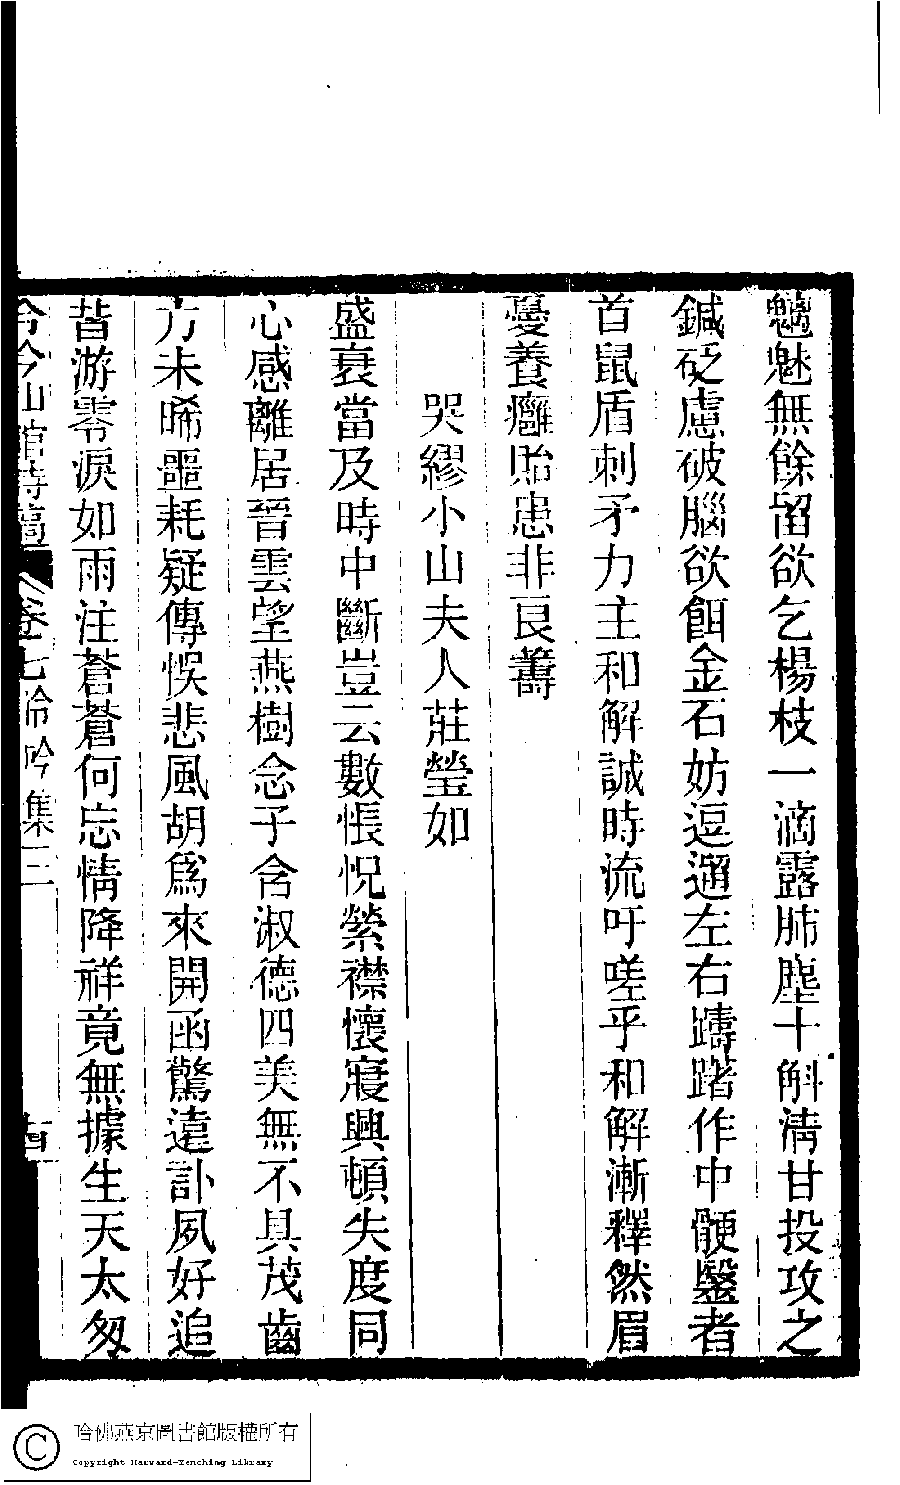 魑魅無餘留欲乞楊枝一滴露肺塵十斛清甘投攻之
鍼砭慮破腦欲餌金石妨逗遛左右躊躇作中骾毉者
首鼠盾刺矛力主和解誠時流吁嗟乎和解漸釋然眉
憂養癰貽患非良籌
哭繆小山夫人莊瑩如
盛衰當及時中斷豈云數悵怳縈襟懷寢興頓失度同
心感離居晉雲望燕樹念子含淑德四美無不具茂齒
方未晞噩耗疑傳悞悲風胡為來開函驚遠訃夙好追
昔游零淚如雨注蒼蒼何忘情降祥竟無據生天太匆
冷吟山館詩藁 卷七冷吟集三
哈佛燕京圖書館版權所有
Copyright Harvard-Yenching Library